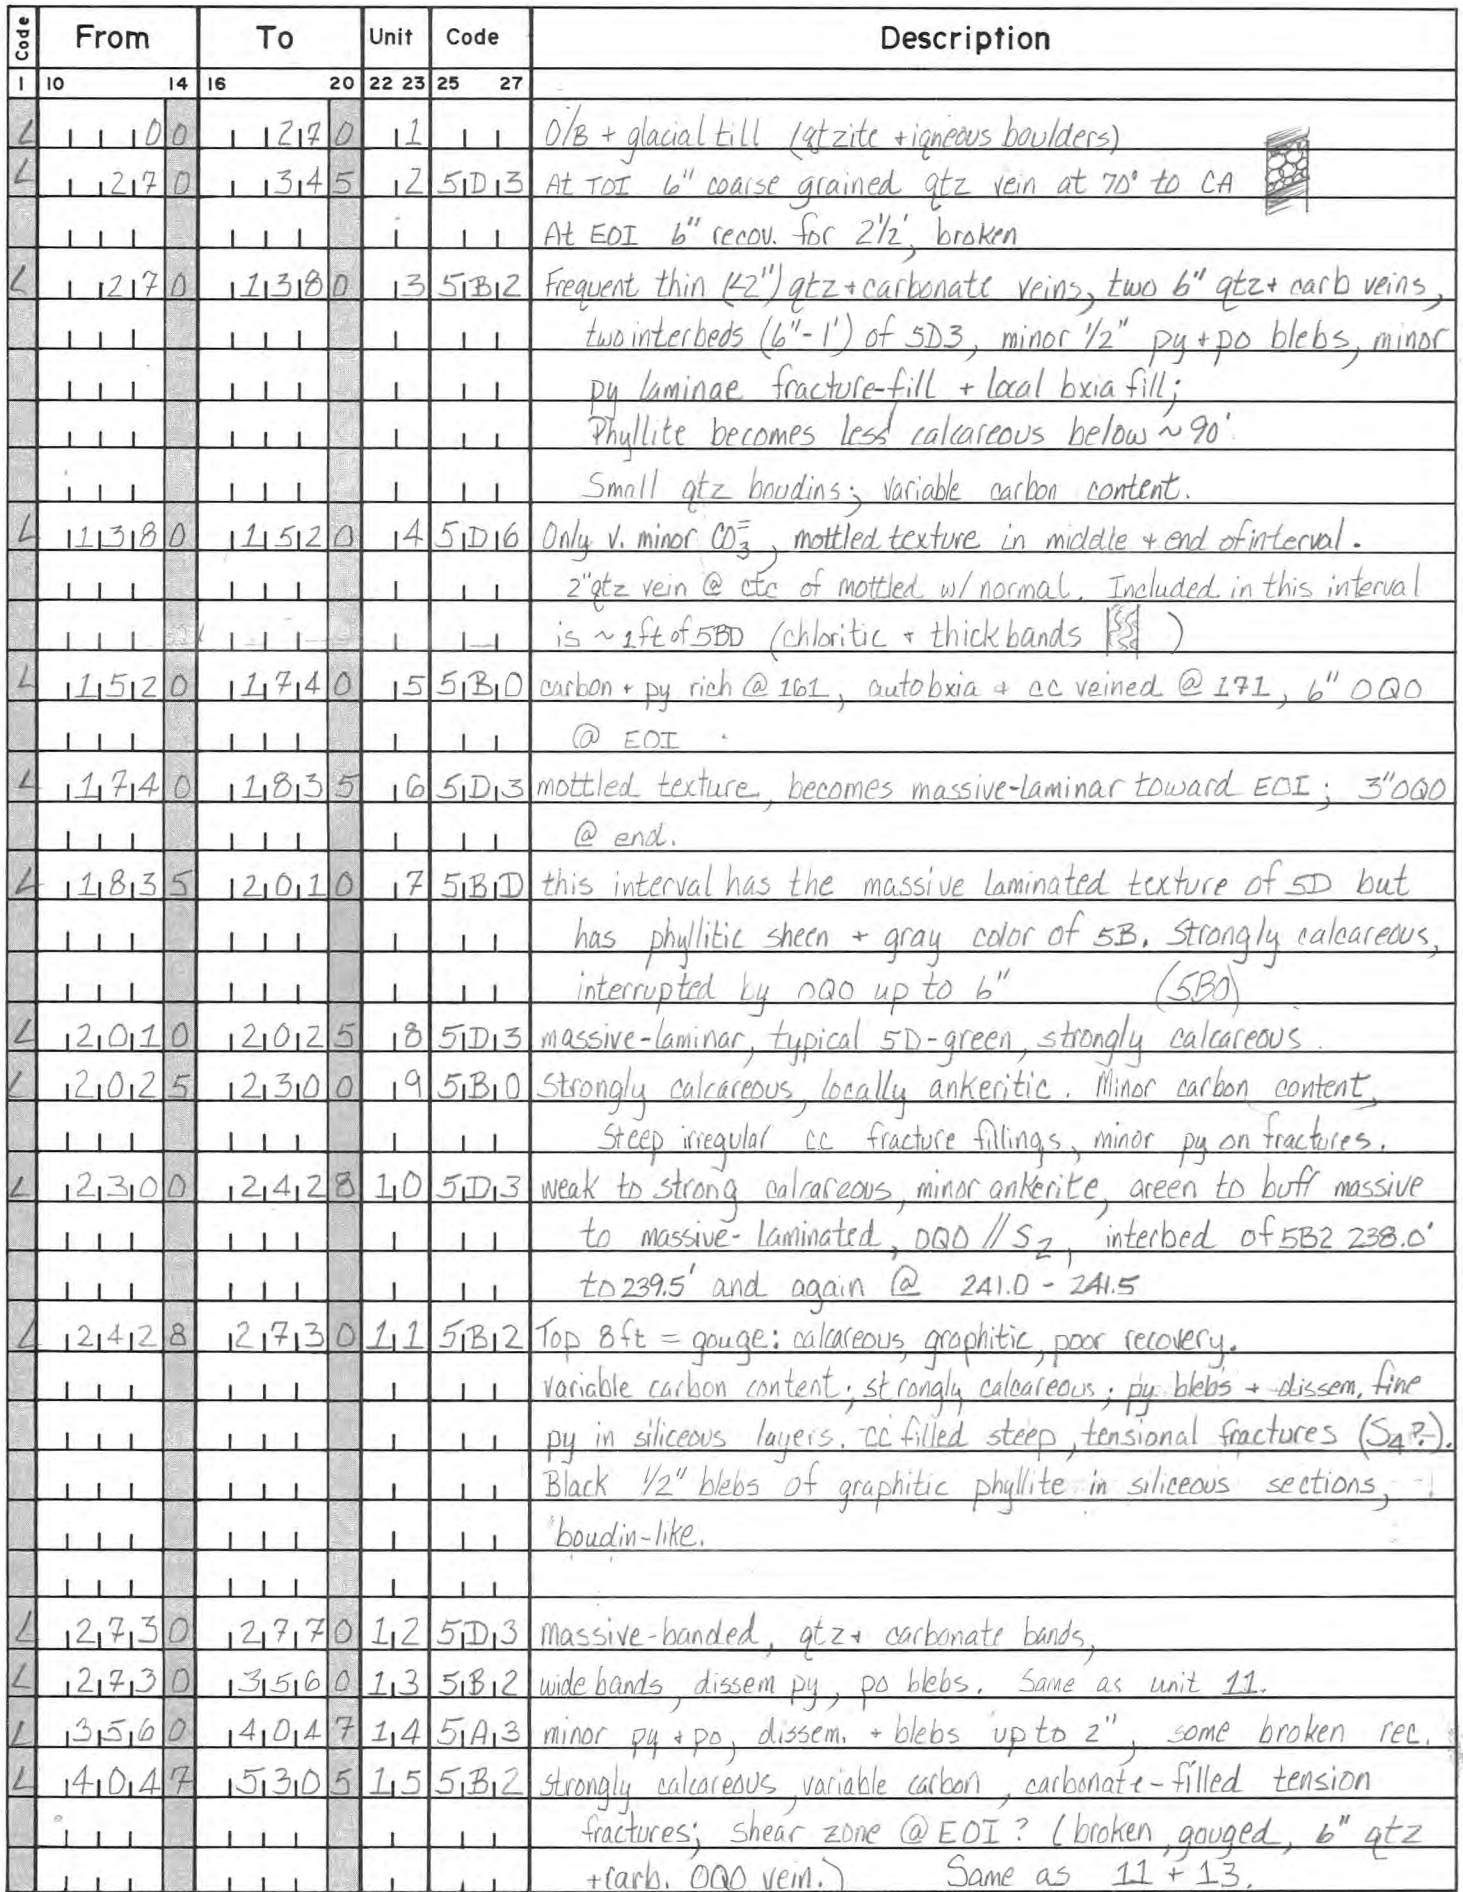 Code From To Unit Code Description
1 10 14 16 20 22 23 25 27
L 0 0 27 0 1 O/B + glacial till (qtzite + igneous boulders)
L 27 0 34 5 2 5D3 At TOI 6" coarse grained qtz vein at 70° to CA
At EOI 6" recov. for 2½', broken
L 27 0 138 0 3 5B2 Frequent thin (<2") qtz + carbonate veins, two 6" qtz + carb veins,
two interbeds (6"-1') of 5D3, minor 1/2" py + po blebs, minor
py laminae fracture-fill + local bxia fill;
Phyllite becomes less calcareous below ~90'
Small qtz boudins; variable carbon content.
L 138 0 152 0 4 5D6 Only v. minor CO3=, mottled texture in middle + end of interval.
2" qtz vein @ ctc of mottled w/ normal. Included in this interval
is ~1ft of 5BD (chloritic + thick bands )
L 152 0 174 0 5 5B0 carbon + py rich @ 161, autobxia + cc veined @ 171, 6" OQO
@ EOI
L 174 0 183 5 6 5D3 mottled texture, becomes massive-laminar toward EOI; 3" OQO
@ end.
L 183 5 201 0 7 5BD this interval has the massive laminated texture of 5D but
has phyllitic sheen + gray color of 5B. Strongly calcareous,
interrupted by OQO up to 6" (5B0)
L 201 0 202 5 8 5D3 massive-laminar, typical 5D-green, strongly calcareous.
L 202 5 230 0 9 5B0 Strongly calcareous, locally ankeritic. Minor carbon content,
Steep irregular cc fracture fillings, minor py on fractures.
L 230 0 242 8 10 5D3 weak to strong calcareous, minor ankerite, green to buff massive
to massive-laminated, OQO // S2, interbed of 5B2 238.0'
to 239.5' and again @ 241.0 - 241.5
L 242 8 273 0 11 5B2 Top 8 ft = gouge: calcareous, graphitic, poor recovery.
variable carbon content; strongly calcareous; py blebs + dissem, fine
py in siliceous layers. cc filled steep, tensional fractures (S4?).
Black 1/2" blebs of graphitic phyllite in siliceous sections,
boudin-like.
L 273 0 277 0 12 5D3 massive-banded, qtz + carbonate bands,
L 273 0 356 0 13 5B2 wide bands, dissem py, po blebs. Same as unit 11.
L 356 0 404 7 14 5A3 minor py + po, dissem. + blebs up to 2", some broken rec.
L 404 7 530 5 15 5B2 strongly calcareous, variable carbon, carbonate-filled tension
fractures; shear zone @ EOI? (broken, gouged, 6" qtz
+carb. OQO vein.) Same as 11 + 13.